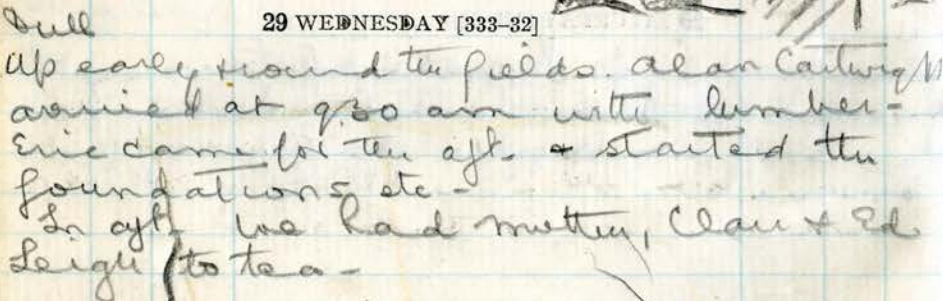 Dull
29 WEDNESDAY [333-32]
Up early & round the fields. Alan Cartwright
arrived at 9.30 am with lumber-
Eric came for the aft. & started the
foundations etc-
In aft we had , Clair & Ed
Leigh to tea-